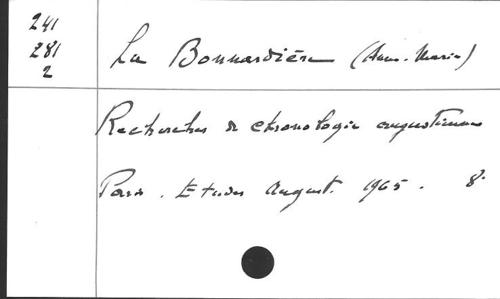 241
281
2
La Bonnardière (Anne-Marie)
Recherches de chronologie augustinienne
Paris. Etudes August. 1965. 8°